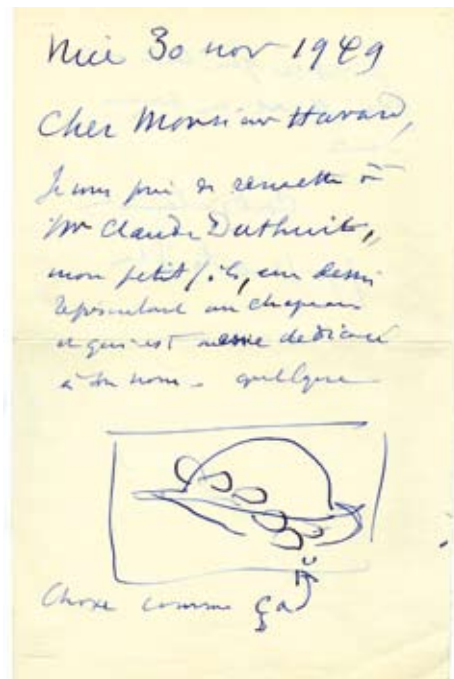 Nice 30 nov 1949
Cher Monsieur Havard,
Je vous prie de remettre à
Mr Claude Duthuit,
mon petit fils, un dessin
représentant un chapeau
et qui est dédicacé
à son nom - quelque
Chose comme ça